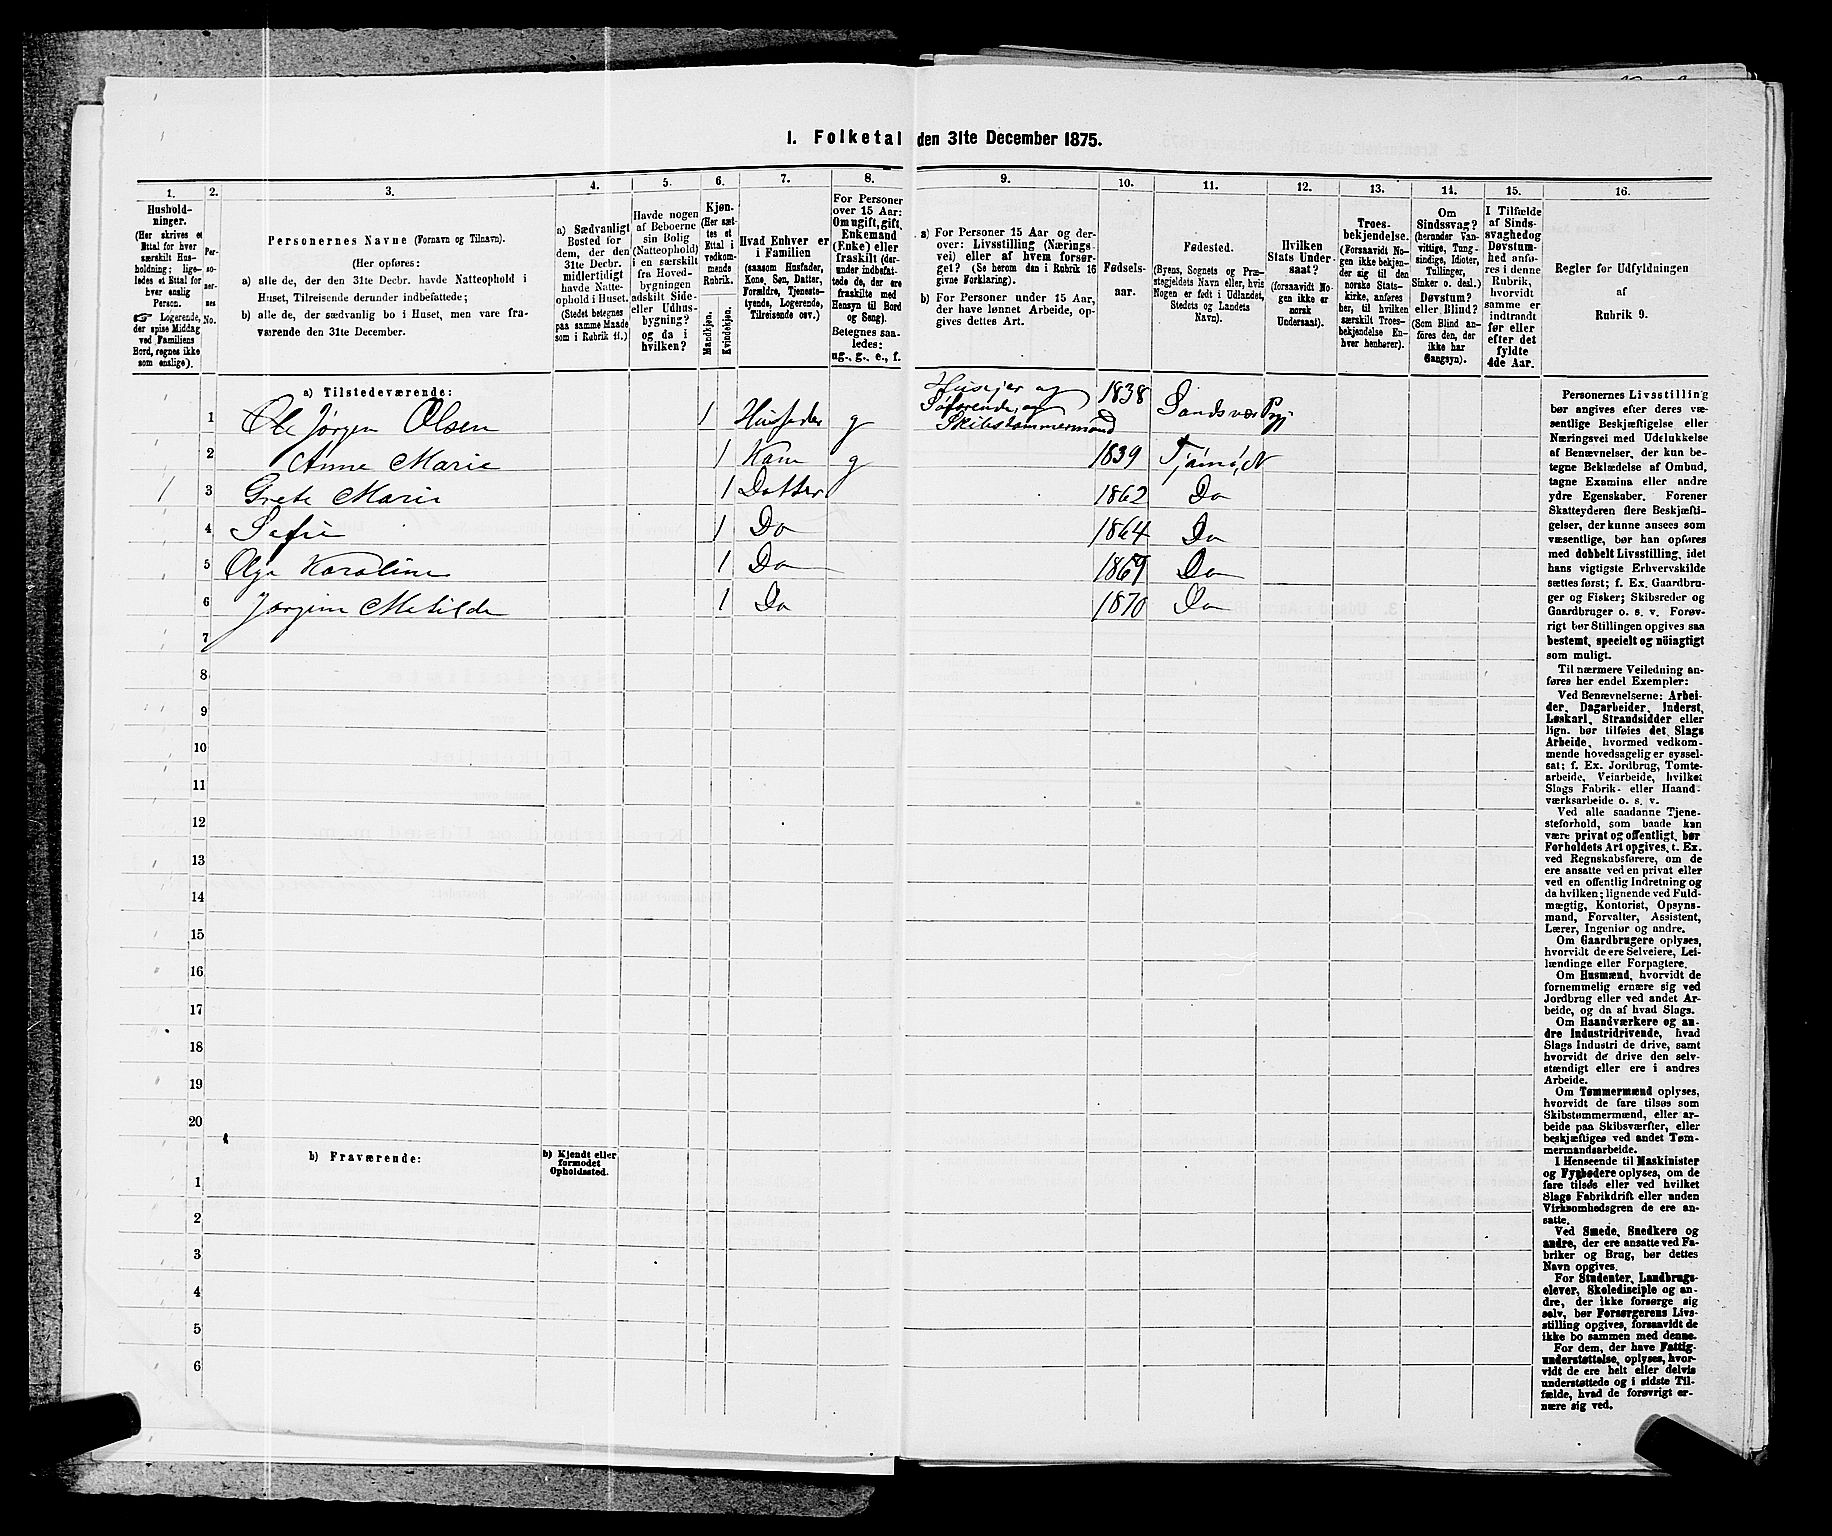 1. Folketal den 31te December 1875.
1.
2.
3.
4.
5.
6.
7.
8.
9.
10.
11.
12.
13.
14.
15.
16.
Hushold-
ninger.
(Her skrives et
Ettal for hver
særskilt Hus-
holdning; lige-
ledes et Ettal for
hver enslig
Person.
☞ Logerende,
der spise Middag
ved Familiens
Bord, regnes ikke
som enslige).
Per-
so-
ner-
nes
No.
Personernes Navne (Fornavn og Tilnavn).
(Her opføres:
a) alle de, der den 31te Decbr. havde Natteophold i
Huset, Tilreisende derunder indbefattede;
b) alle de, der sædvanlig bo i Huset, men vare fra-
værende den 31te December.
a) Sædvanligt
Bosted for
dem, der den
31te Decbr.
midlertidigt
havde Natte-
ophold i Huset.
(Stedet betegnes
paa samme Maade
som i Rubrik 11.)
Havde nogen
af Beboerne
sin Bolig
(Natteophold)
i en særskilt
fra Hoved-
bygningen
adskilt Side-
eller Udhus-
bygning?
og da i
hvilken?
Kjøn.
(Her sæt-
tes et
Ettal i
vedkom-
mende
Rubrik.
Mandkjøn.
Kvindekjøn.
Hvad Enhver er
i Familien
(saasom Husfader,
Kone, Søn, Datter,
Forældre, Tjeneste-
tyende, Logerende,
Tilreisende osv.)
For Personer
over 15 Aar:
Om ugift, gift,
Enkemand
(Enke) eller
fraskilt (der-
under indbefat-
tede de, der ere
fraskilte med
Hensyn til Bord
og Seng).
Betegnes saa-
ledes:
ug., g., e., f.
a) For Personer 15 Aar og der-
over: Livsstilling (Nærings-
vei) eller af hvem forsør-
get? (Se herom den i Rubrik 16
givne Forklaring).
b) For Personer under 15 Aar,
der have lønnet Arbeide, op-
gives dettes Art.
Fødsels-
aar.
Fødested.
(Byens, Sognets og Præ-
stegjeldets Navn eller, hvis
Nogen er født i Udlandet,
Stedets og Landets
Navn).
Hvilken
Stats Under-
saat?
(forsaavidt No-
gen ikke er
norsk
Undersaat).
Troes-
bekjendelse.
(Forsaavidt No-
gen ikke bekjen-
der sig til den
norske Stats-
kirke, anføres
her, til hvilken
særskilt Troes-
bekjendelse En-
hver henhører).
Om
Sindssvag?
(herunder Van-
vittige, Tung-
sindige, Idioter,
Tullinger,
Sinker o. desl.)
Døvstum?
eller Blind?
(Som Blind an-
føres den, der
ikke har
Gangsyn).
I Tilfælde
af Sinds-
svaghed og
Døvstum-
hed anfø-
res i denne
Rubrik,
hvorvidt
samme er
indtraadt
før eller
efter det
fyldte
4de Aar.
Regler for Udfyldningen
af
Rubrik 9.
a) Tilstedeværende:
1 Ole Jørgen Olsen 1 Husfader g Husejer og Søfarende, og Skibstømmermand 1838 Sandsvær Pgj
2 Anne Marie 1 Kone g 1839 Tjømø,
1 3 Grete Marie 1 Datter 1862 Do
4 Sofie 1 Do 1864 Do
5 Olga Karoline 1 Do 1869 Do
6 Jørgine Matilde 1 Do 1870 Do
7
8
9
10
11
12
13
14
15
16
17
18
19
20
b) Fraværende:
b) Kjendt eller
formodet
Opholdssted.
1
2
3
4
5
6
Personernes Livsstilling
bør angives efter deres væ-
sentlige Beskjæftigelse eller
Næringsvei med Udelukkelse
af Benævnelser, der kun be-
tegne Beklædelse af Ombud,
tagne Examina eller andre
ydre Egenskaber. Forener
Skatteyderen flere Beskjæfti-
gelser, der kunne ansees som
væsentlige, bør han opføres
med dobbelt Livsstilling, idet
hans vigtigste Erhvervskilde
sættes først; f. Ex. Gaardbru-
ger og Fisker; Skibsreder og
Gaardbruger o. s. v. Forøv-
rigt bør Stillingen opgives saa
bestemt, specielt og nöiagtigt
som muligt.
Til nærmere Veiledning an-
føres her endel Exempler:
Ved Benævnelserne: Arbei-
der, Dagarbeider, Inderst,
Løskarl, Strandsidder eller
lign. bør tilføies det Slags
Arbeide, hvormed vedkom-
mende hovedsagelig er syssel-
sat; f. Ex. Jordbrug, Tomte-
arbeide, Veiarbeide, hvilket
Slags Fabrik- eller Haand-
værksarbeide o. s. v.
Ved alle saadanne Tjene-
steforhold, som baade kan
være privat og offentligt, bør
Forholdets Art opgives, t. Ex.
ved Regnskabsførere, om de
ere ansatte ved en privat eller
ved en offentlig Indretning og
da hvilken; lignende ved Fuld-
mægtig, Kontorist, Opsyns-
mand, Forvalter, Assistent,
Lærer, Ingeniør og andre.
Om Gaardbrugere oplyses,
hvorvidt de ere Selveiere, Lei-
lændinge eller Forpagtere.
Om Husmænd, hvorvidt de
fornemmelig ernære sig ved
Jordbrug eller ved andet Ar-
beide, og da af hvad Slags.
Om Haandværkere og an-
dre Industridrivende, hvad
Slags Industri de drive, samt
hvorvidt de drive den selv-
stændigt eller ere i andres
Arbeide.
Om Tømmermænd oplyses,
hvorvidt de fare tilsøs som
Skibstømmermænd, eller ar-
beide paa Skibsværfter, eller
beskjæftiges ved andet Tøm-
mermandsarbeide.
I Henseende til Maskinister
og Fyrbødere oplyses, om de
fare tilsøs eller ved hvilket
Slags Fabrikdrift eller anden
Virksomhedsgren de ere an-
satte.
Ved Smede, Snedkere og
andre, der ere ansatte ved Fa-
briker og Brug, bør dettes
Navn opgives.
For Studenter, Landbrugs-
elever, Skoledisciple og an-
dre, der ikke forsørge sig
selv, bør Forsørgerens Livs-
stilling opgives, forsaavidt de
ikke bo sammen med denne.
For dem, der have Fattig-
understøttelse, oplyses, hvor-
vidt de ere helt eller delvis
understøttede og i sidste Til-
fælde, hvad de forøvrigt er-
nære sig ved.